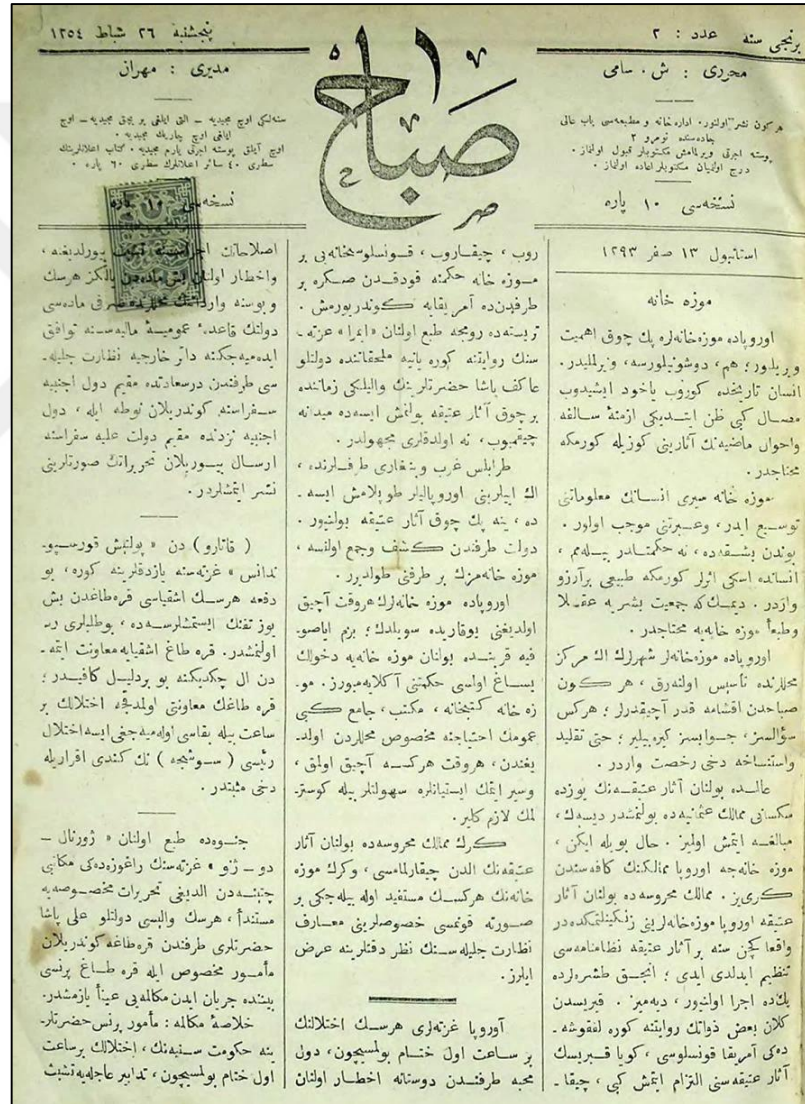 برنجی سنه عدد : ٢
پنجشنبه ٢٦ شباط ١٢٥٤
صباح
محرری : ش . سامی
هر كون نشر اولنور . اداره خانه و مطبعه‌سی باب عالی
جاده‌سنده نومرو ٢
پوسته اجرتی ویرلمامش مكتوبلر قبول اولنماز .
درج اولنمیان مكتوبلر اعاده اولنماز .
نسخه‌سی ١٠ پاره
مدیری : مهران
سنه‌لكی اوچ مجیدیه – التی ایلغی بر بچق مجیدیه – اوچ
ایلغی اوچ چاریك مجیدیه .
اوچ آیلق پوسته اجرتی یارم مجیدیه . كتاب اعلانلرینك
سطری ٤٠ سائر اعلانلرك سطری ٦٠ پاره .
نسخه‌سی ١٠ پاره
استانبول ١٣ صفر ١٢٩٣
موزه خانه
اوروپاده موزه‌خانه‌لره پك چوق اهمیت
ویریلور ؛ هم ، دوشونیلورسه ، ویرلملیدر .
انسان تاریخده كوروب یاخود ایشیدوب
مصال كبی ظن ایتدیكی ازمنهٔ سالفه
واحوال ماضیه‌نك آثارینی كوزیله كورمكه
محتاجدر .
موزه خانه سیری انسانك معلوماتنی
توسیع ایدر ، وعبرتنی موجب اولور .
بوندن بشقه‌ده ، نه حكمتدر بیله‌مم ،
انسانده اسكی اثرلر كورمكه طبیعی برآرزو
واردر . دیمك‌كه جمعیت بشریه عقلا
وطبعاً موزه خانه‌یه محتاجدر .
اوروپاده موزه‌خانه‌لر شهرلرك اك مركز
محللرنده تأسیس اولنه‌رق ، هر كون
صباحدن اقشامه قدر آچیقدرلر ؛ هركس
سؤالسز ، جوابسز كیره‌بیلیر ؛ حتی تقلید
واستنساخه دخی رخصت واردر .
عالمده بولنان آثار عتیقه‌نك یوزده
سكسانی ممالك عثمانیه‌ده بولنمشدر دیسه‌ك ،
مبالغه ایتمش اولمیز . حال بویله ایكن ،
موزه خانه‌جه اوروپا ممالكنك كافه‌سندن
كری‌یز . ممالك محروسه‌ده بولنان آثار
عتیقه اوروپا موزه‌خانه‌لرینی زنكینلتمكده‌در
واقعا كچن سنه بر آثار عتیقه نظامنامه‌سی
تنظیم ایدلدی ایدی ؛ انجق طشره‌لرده
پك‌ده اجرا اولنیور ، دیه‌میز . قبریسدن
كلان بعض ذواتك روایتنه كوره لفقوشه‌ـ
ده‌كی آمریقا قونسلوسی ، كویا قبریسك
آثار عتیقه‌سنی التزام ایتمش كبی ، چیقاـ
روب ، چیقاروب ، قونسلوسخانه‌یی بر
موزه خانه حكمنه قودقدن صكره بر
طرفدن‌ده آمریقایه كوندریورمش .
تریسته‌ده رومجه طبع اولنان « ایمرا » غزته‌ـ
سنك روایتنه كوره یانیه ملحقاتنده دولتلو
عاكف پاشا حضرتلرینك والیلكی زماننده
بر چوق آثار عتیقه بولنمش ایسه‌ده میدانه
چیقمیوب ، نه اولدقلری مجهولدر .
طرابلس غرب وبنغازی طرفلرنده ،
اك اییلرینی اوروپالیلر طوپلامش ایسه‌ـ
ده ، ینه پك چوق آثار عتیقه بولنیور .
دولت طرفندن كشف وجمع اولنسه ،
موزه خانه‌مزك بر طرفنی طولدیرر .
اوروپاده موزه خانه‌لرك هروقت آچیق
اولدیغنی یوقاریده سویلدك ؛ بزم ایاصوـ
فیه قربنده بولنان موزه خانه‌یه دخولك
یساغ اولمسی حكمتنی آكلایه‌میورز . موـ
زه خانه كتبخانه ، مكتب ، جامع كبی
عمومك احتیاجنه مخصوص محللردن اولدـ
یغندن ، هروقت هركسه آچیق اولمق ،
وسیر ایتمك ایستیانلره سهولتلر بیله كوسترـ
لمك لازم كلیر .
كرك ممالك محروسه‌ده بولنان آثار
عتیقه‌نك الدن چیقارلمامسی ، وكرك موزه
خانه‌نك هركسك مستفید اوله بیله‌جكی بر
صورته قونمسی خصوصلرینی معارف
نظارت جلیله‌سنك نظر دقتلرینه عرض
ایلرز .
آوروپا غزته‌لری هرسك اختلالنك
بر ساعت اول ختام بولمسیچون ، دول
محبه طرفندن دوستانه اخطار اولنان
اصلاحاتك اجراسنه بیورلدیغنه ،
واخطار اولنان بش ماده‌دن یالكز هرسك
وبوسنه وارداتنك صرفی ماده‌سی
دولتك قاعدهٔ عمومیهٔ مالیه‌سنه توافق
ایده‌میه‌جكنه دائر خارجیه نظارت جلیله‌ـ
سی طرفندن درسعادتده مقیم دول اجنبیه
سفراسنه كوندریلان نوطه ایله ، دول
اجنبیه نزدنده مقیم دولت علیه سفراسنه
ارسال بیوریلان تحریراتك صورتلرینی
نشر ایتمشلردر .
( قاتارو ) دن « پولتیش قورسپوـ
ندانس » غزته‌سنه یازدقلرینه كوره ، بو
دفعه هرسك اشقیاسی قره‌طاغدن بش
یوز تفنك ایستمشلرسه‌ده ، بوطلبلری رد
اولنمشدر . قره طاغ اشقیایه معاونت ایتمه‌ـ
دن ال چكدیكنه بو بردلیل كافیدر ؛
قره طاغك معاونتی اولمدقجه اختلالك بر
ساعت بیله بقاسی اوله‌میه‌جغی ایسه اختلال
رئیسی ( سوشیجه ) نك كندی اقراریله
دخی مثبتدر .
جنوه‌ده طبع اولنان « ژورنال –
دو – ژنو » غزته‌سنك راغوزه‌ده‌كی مكاتبی
چتینه‌دن الدیغی تحریرات مخصوصه‌یه
مستنداً ، هرسك والیسی دولتلو علی پاشا
حضرتلری طرفندن قره‌طاغه كوندریلان
مأمور مخصوص ایله قره طاغ پرنسی
بیننده جریان ایدن مكالمه‌یی عیناً یازمشدر .
خلاصهٔ مكالمه : مأمور پرنس حضرتلرـ
ینه حكومت سنیه‌نك ، اختلالك برساعت
اول ختام بولمسیچون ، تدابیر عاجله‌یه تشبث